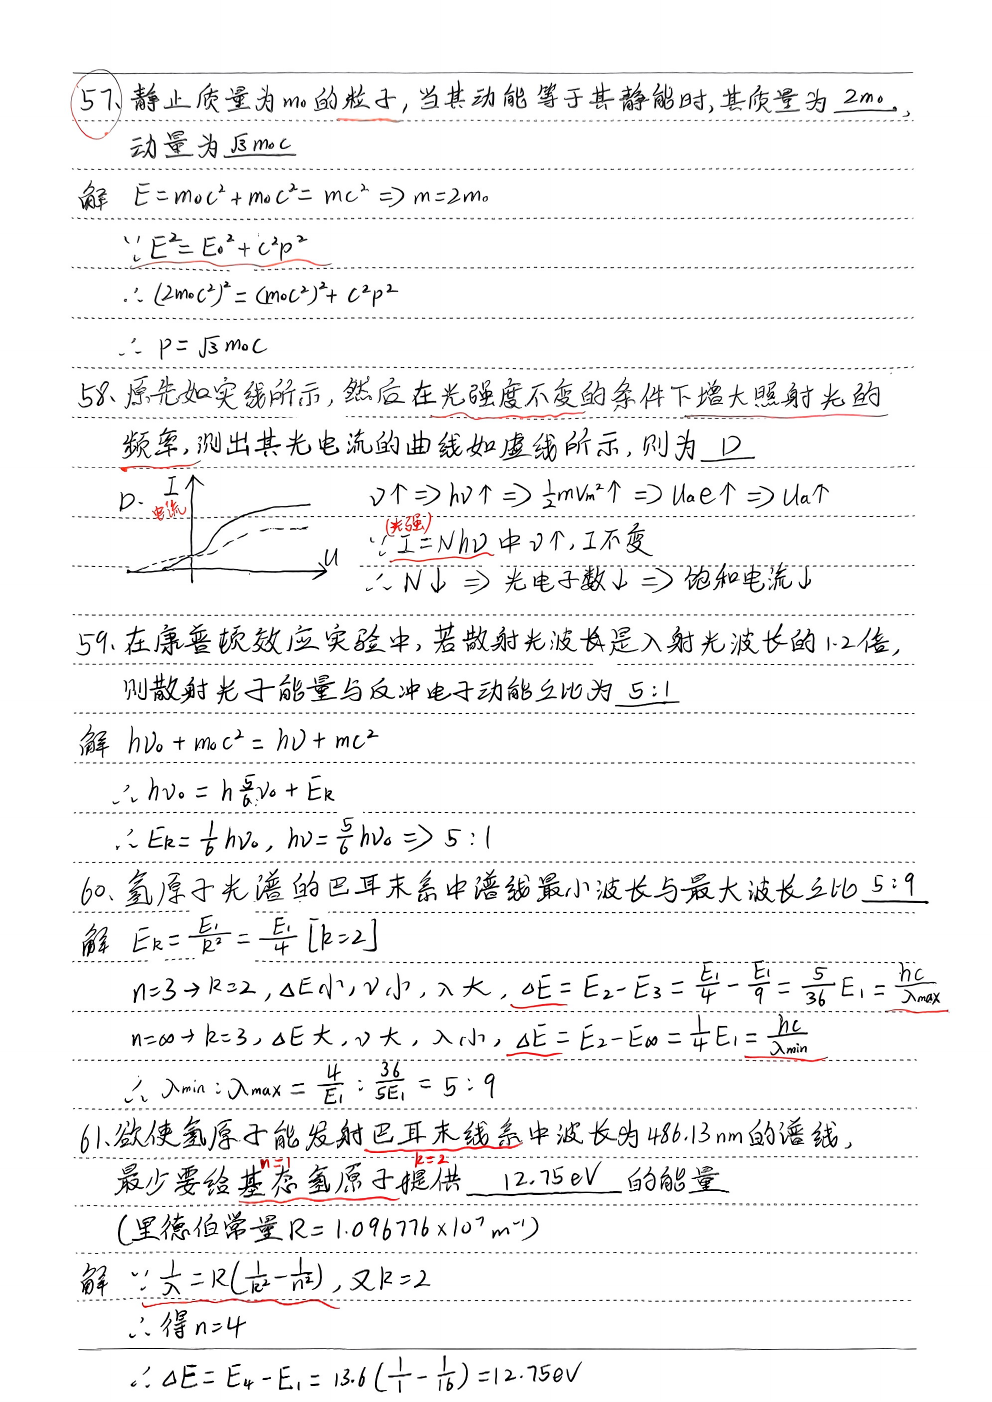 57、静止质量为m₀的粒子,当其动能等于其静能时,其质量为 2m₀ ,
动量为 √3 m₀c
解 E=m₀c²+m₀c²=mc² ⇒ m=2m₀
∵E²=E₀²+c²p²
∴(2m₀c²)²=(m₀c²)²+c²p²
∴ p=√3 m₀c
58、原先如实线所示,然后在光强度不变的条件下增大照射光的
频率,测出其光电流的曲线如虚线所示,则为 D
D. I 电流 U
ν↑⇒hν↑⇒½mVm²↑⇒Uae↑⇒Ua↑
(光强)
∵ I=Nhν中ν↑,I不变
∴N↓ ⇒ 光电子数↓ ⇒ 饱和电流↓
59、在康普顿效应实验中,若散射光波长是入射光波长的1.2倍,
则散射光子能量与反冲电子动能之比为 5:1
解 hν₀+m₀c²=hν+mc²
∴hν₀=h 5/6 ν₀+Ek
∴Ek=1/6 hν₀, hν=5/6 hν₀ ⇒ 5:1
60、氢原子光谱的巴耳末系中谱线最小波长与最大波长之比 5:9
解 Ek=E₁/k²=E₁/4 [k=2]
n=3→k=2,ΔE小,ν小,λ大,ΔE=E₂-E₃=E₁/4-E₁/9=5/36 E₁=hc/λmax
n=∞→k=3,ΔE大,ν大,λ小,ΔE=E₂-E∞=1/4 E₁=hc/λmin
∴ λmin:λmax=4/E₁:36/5E₁=5:9
61、欲使氢原子能发射巴耳末线系中波长为486.13nm的谱线,
n=1 k=2
最少要给基态氢原子提供 12.75eV 的能量
(里德伯常量R=1.096776×10⁷m⁻¹)
解 ∵1/λ=R(1/k²-1/n²),又k=2
∴得n=4
∴ΔE=E₄-E₁=13.6(1/1-1/16)=12.75eV